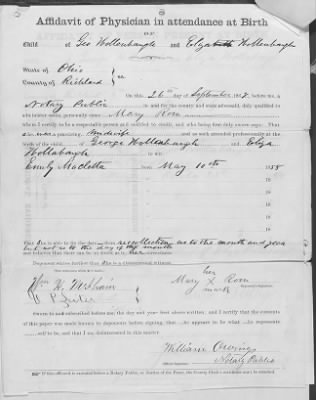 Affidavit of Physician in attendance at Birth
OF
Child of Geo Hollenbaugh and Elizabeth Hollenbaugh
State of Ohio
County of Richland } ss.
On this, 26th day of September, 1887, before me, a
Notary Public in and for the county and state aforesaid, duly qualified to
administer oaths, personally came Mary Rom
whom I certify to be a respectable person and entitled to credit, and who being duly sworn says: That
she was a practicing midwife and as such attended professionally at the
birth of the child of George Hollenbaugh and Eliza
Hollabaugh to wit:
Emily Macletta born May 10th 1858
18
18
18
18
18
That she is able to fix the
but not as to the day of the month
and believes that there can be no mistake as to
Deponent further declares that she is a disinterested witness.
Wm. H. McIlhain
her
Mary X Rom
mark
Sworn to and subscribed before me, the day and year first above written; and I certify that the contents
of this paper was made known to deponent before signing, that he appears to be what he represents
self to be, and that I am disinterested in this matter.
William Owings
Notary Public
If this affidavit is executed before a Notary Public, or Justice of the Peace, the County Clerk's certificate must be attached.